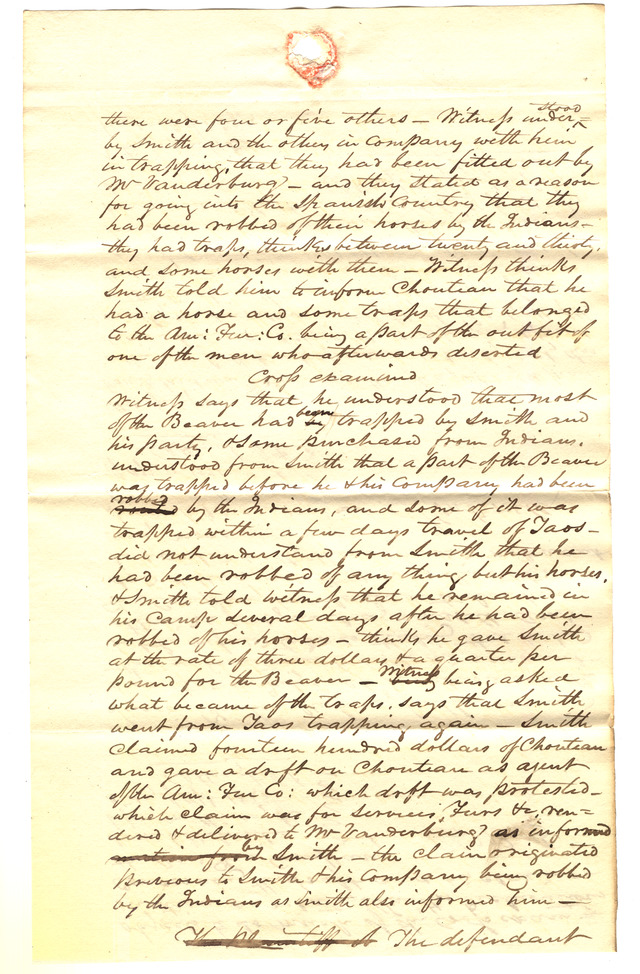 there were four or five others – Witness under=stood
by Smith and the others in company with him
in trapping, that they had been fitted out by
Mr Vanderburg – and they stated as a reason
for going into the Spanish Country that they
had been robbed of their horses by the Indians –
they had traps, thinks between twenty and thirty,
and some horses with them – Witness thinks
Smith told him to inform Chouteau that he
had a horse and some traps that belonged
to the Am: Fur: Co. being a part of the outfit of
one of the men who afterwards deserted
Cross examined
Witness says that he understood that most
of the Beaver had been trapped by Smith and
his party, & some purchased from Indians.
understood from Smith that a part of the Beaver
was trapped before he & his Company had been
robbed by the Indians, and some of it was
trapped within a few days travel of Taos –
did not understand from Smith that he
had been robbed of any thing but his horses.
& Smith told witness that he remained in
his Camp several days after he had been
robbed of his horses – thinks he gave Smith
at the rate of three dollars & a quarter per
pound for the Beaver – Witness being asked
what became of the traps. says that Smith
went from Taos trapping again – Smith
claimed fourteen hundred dollars of Chouteau
and gave a drft on Chouteau as agent
of the Am: Fur Co: which drft was protested –
which claim was for services, Furs &c, ren=
dered & delivered to Mr Vanderburg as informed
by Smith – the claim originated
previous to Smith & his Company being robbed
by the Indians as Smith also informed him –
The Plaintiff The defendant